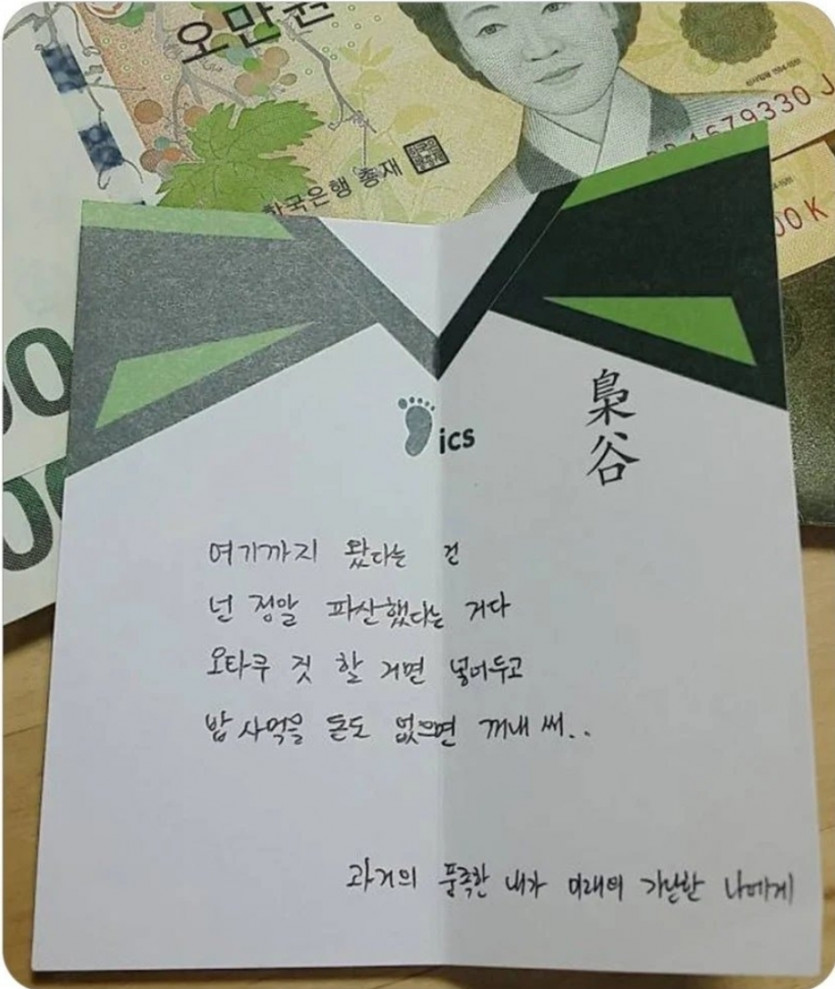 오만원
한국은행 총재
1679330 J
00 K
00
00
ics
梟谷
여기까지 왔다는 건
넌 정말 파산했다는 거다
오타쿠 짓 할 거면 넣어두고
밥 사먹을 돈도 없으면 꺼내 써..
과거의 풍족한 내가 미래의 가난한 나에게